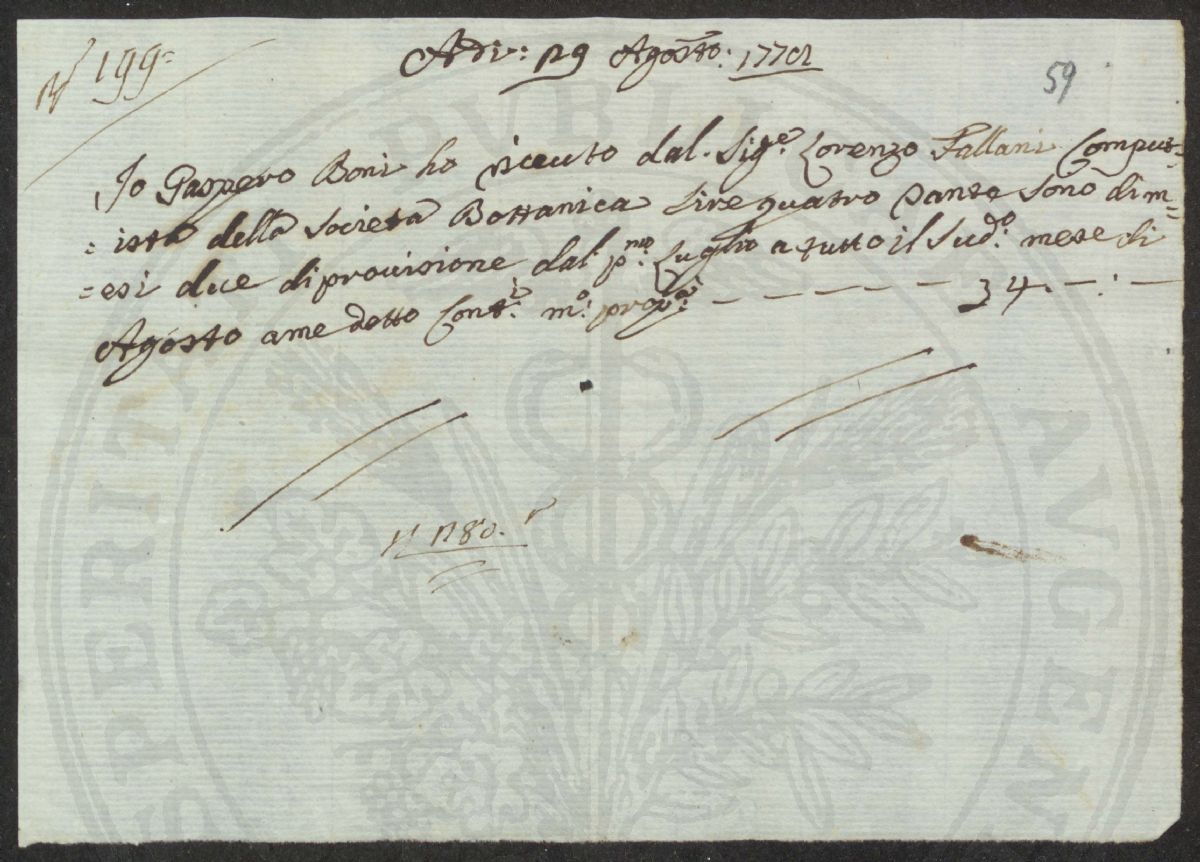 N 199=
Adi: 29 Agosto: 1772
59
Io Gaspero Boni ho riceuto dal. Sig.e Lorenzo Fallani Compu=
=ista della Società Bottanica Lire quatro Sono di m=
=esi due di provisione dal p.mo Luglio a tutto il Sud.o mese di
Agosto a me detto Cont.i m.o prop.a — — — — — — 34. — . —
1780.
PVBLICAE
PERITA
AVGEN